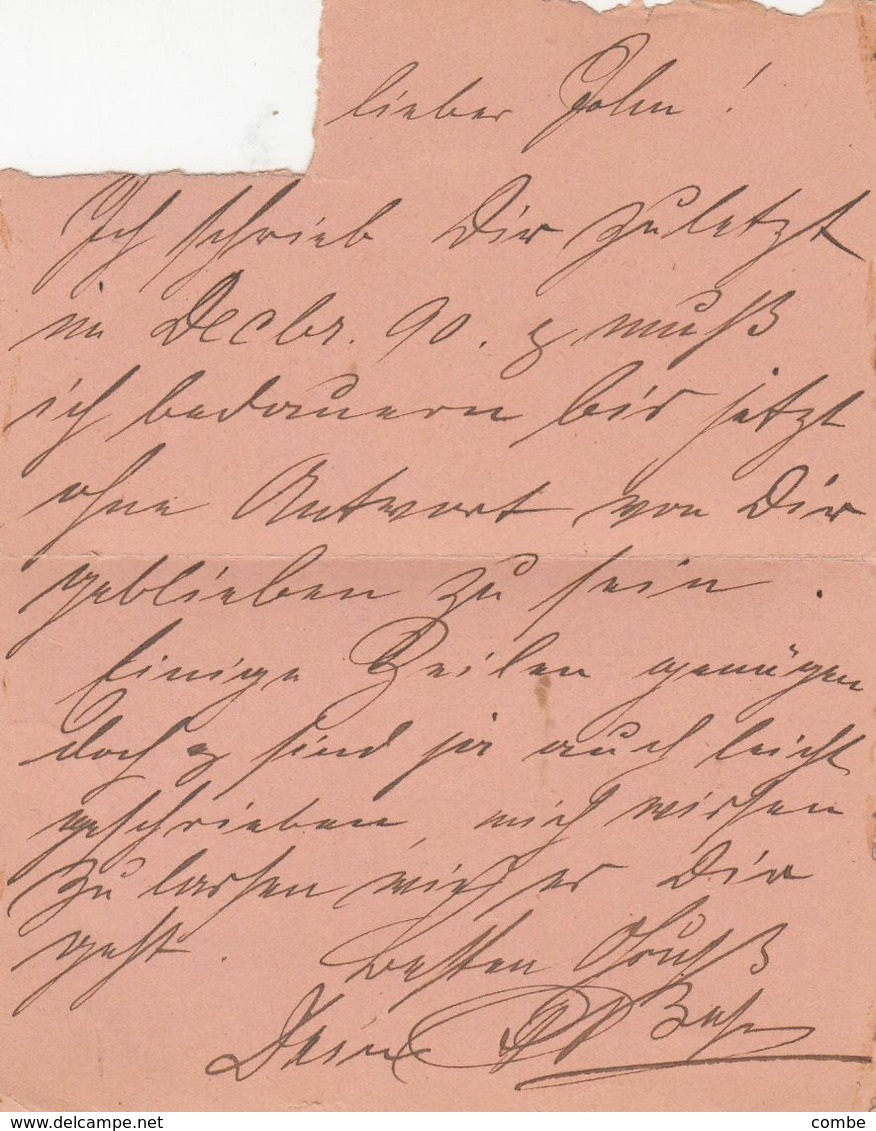 lieber John!
Ich schrieb Dir zuletzt
im Decbr. 90. & muß
ich bedauern bis jetzt
ohne Antwort von Dir
geblieben zu sein.
Einige Zeilen genügen
doch & sind ja auch leicht
geschrieben, mich wissen
zu lassen, wie es Dir
geht. besten Gruß
Dein
www.delcampe.net
combe